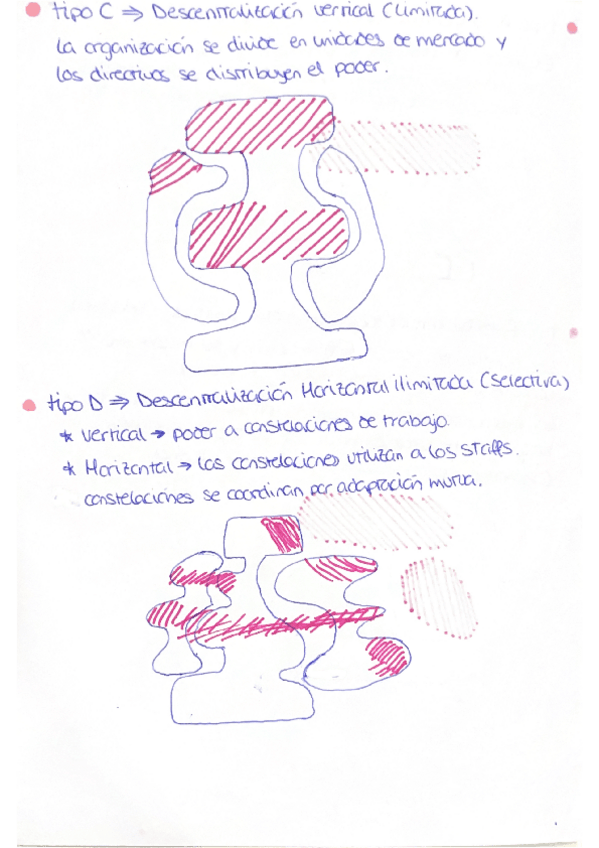 tipo C ⇒ Descentralización vertical (Limitada).
La organización se divide en unidades de mercado y
los directivos se distribuyen el poder.
tipo D ⇒ Descentralización Horizontal ilimitada (Selectiva)
* Vertical → poder a constelaciones de trabajo.
* Horizontal → las constelaciones utilizan a los STaffs.
constelaciones se coordinan por adaptación mutua.